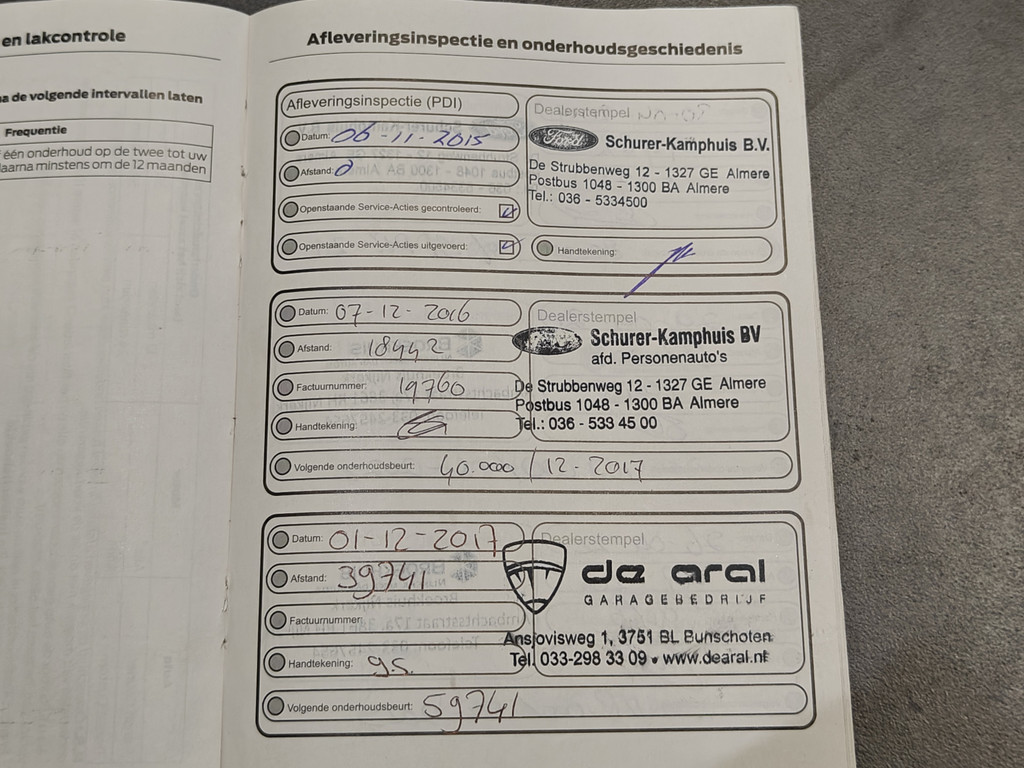 en lakcontrole
na de volgende intervallen laten
Frequentie
één onderhoud op de twee tot uw
daarna minstens om de 12 maanden
Afleveringsinspectie en onderhoudsgeschiedenis
Afleveringsinspectie (PDI)
Datum: 06-11-2015
Afstand: 0
Openstaande Service-Acties gecontroleerd:
Openstaande Service-Acties uitgevoerd:
Dealerstempel
Ford
Schurer-Kamphuis B.V.
De Strubbenweg 12 - 1327 GE Almere
Postbus 1048 - 1300 BA Almere
Tel.: 036 - 5334500
Handtekening:
Datum: 07-12-2016
Afstand: 18442
Factuurnummer: 19760
Handtekening:
Dealerstempel
Schurer-Kamphuis BV
afd. Personenauto's
De Strubbenweg 12 - 1327 GE Almere
Postbus 1048 - 1300 BA Almere
Tel.: 036 - 533 45 00
Volgende onderhoudsbeurt: 40.000 / 12-2017
Datum: 01-12-2017
Afstand: 39741
Factuurnummer:
Handtekening: g.s.
Dealerstempel
de aral
GARAGEBEDRIJF
Ansjovisweg 1, 3751 BL Bunschoten
Tel. 033-298 33 09 • www.dearal.nl
Volgende onderhoudsbeurt: 59741